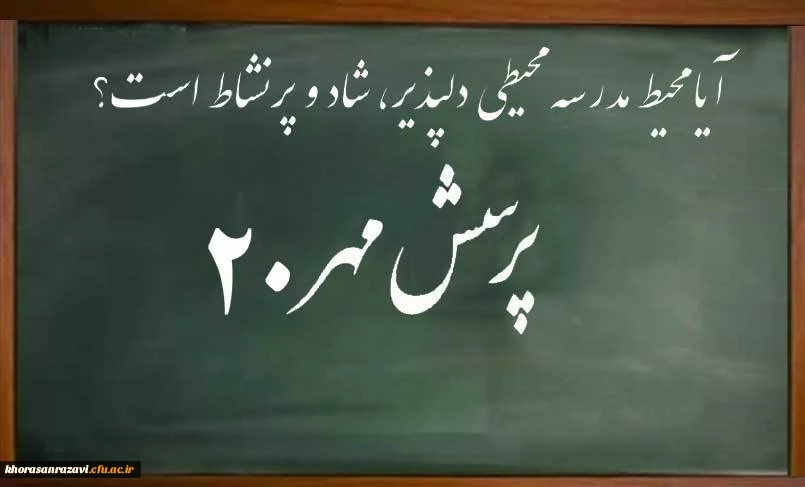 آیا محیط مدرسه محیطی دلپذیر، شاد و پرنشاط است؟
پرسش مهر ۲۰
khorasanrazavi.cfu.ac.ir